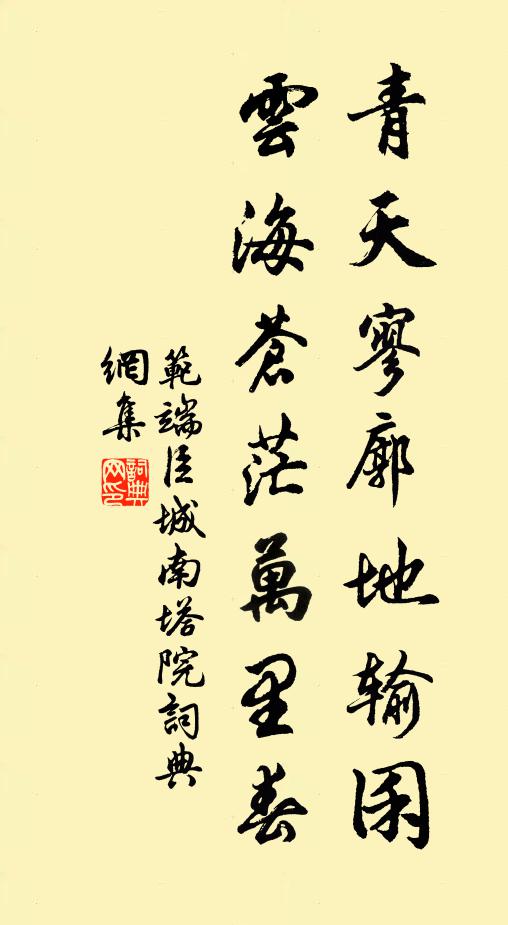 青天寥廓地输囷
雲海蒼茫萬里春
範端臣城南塔院詞典
網集
詞典
网印